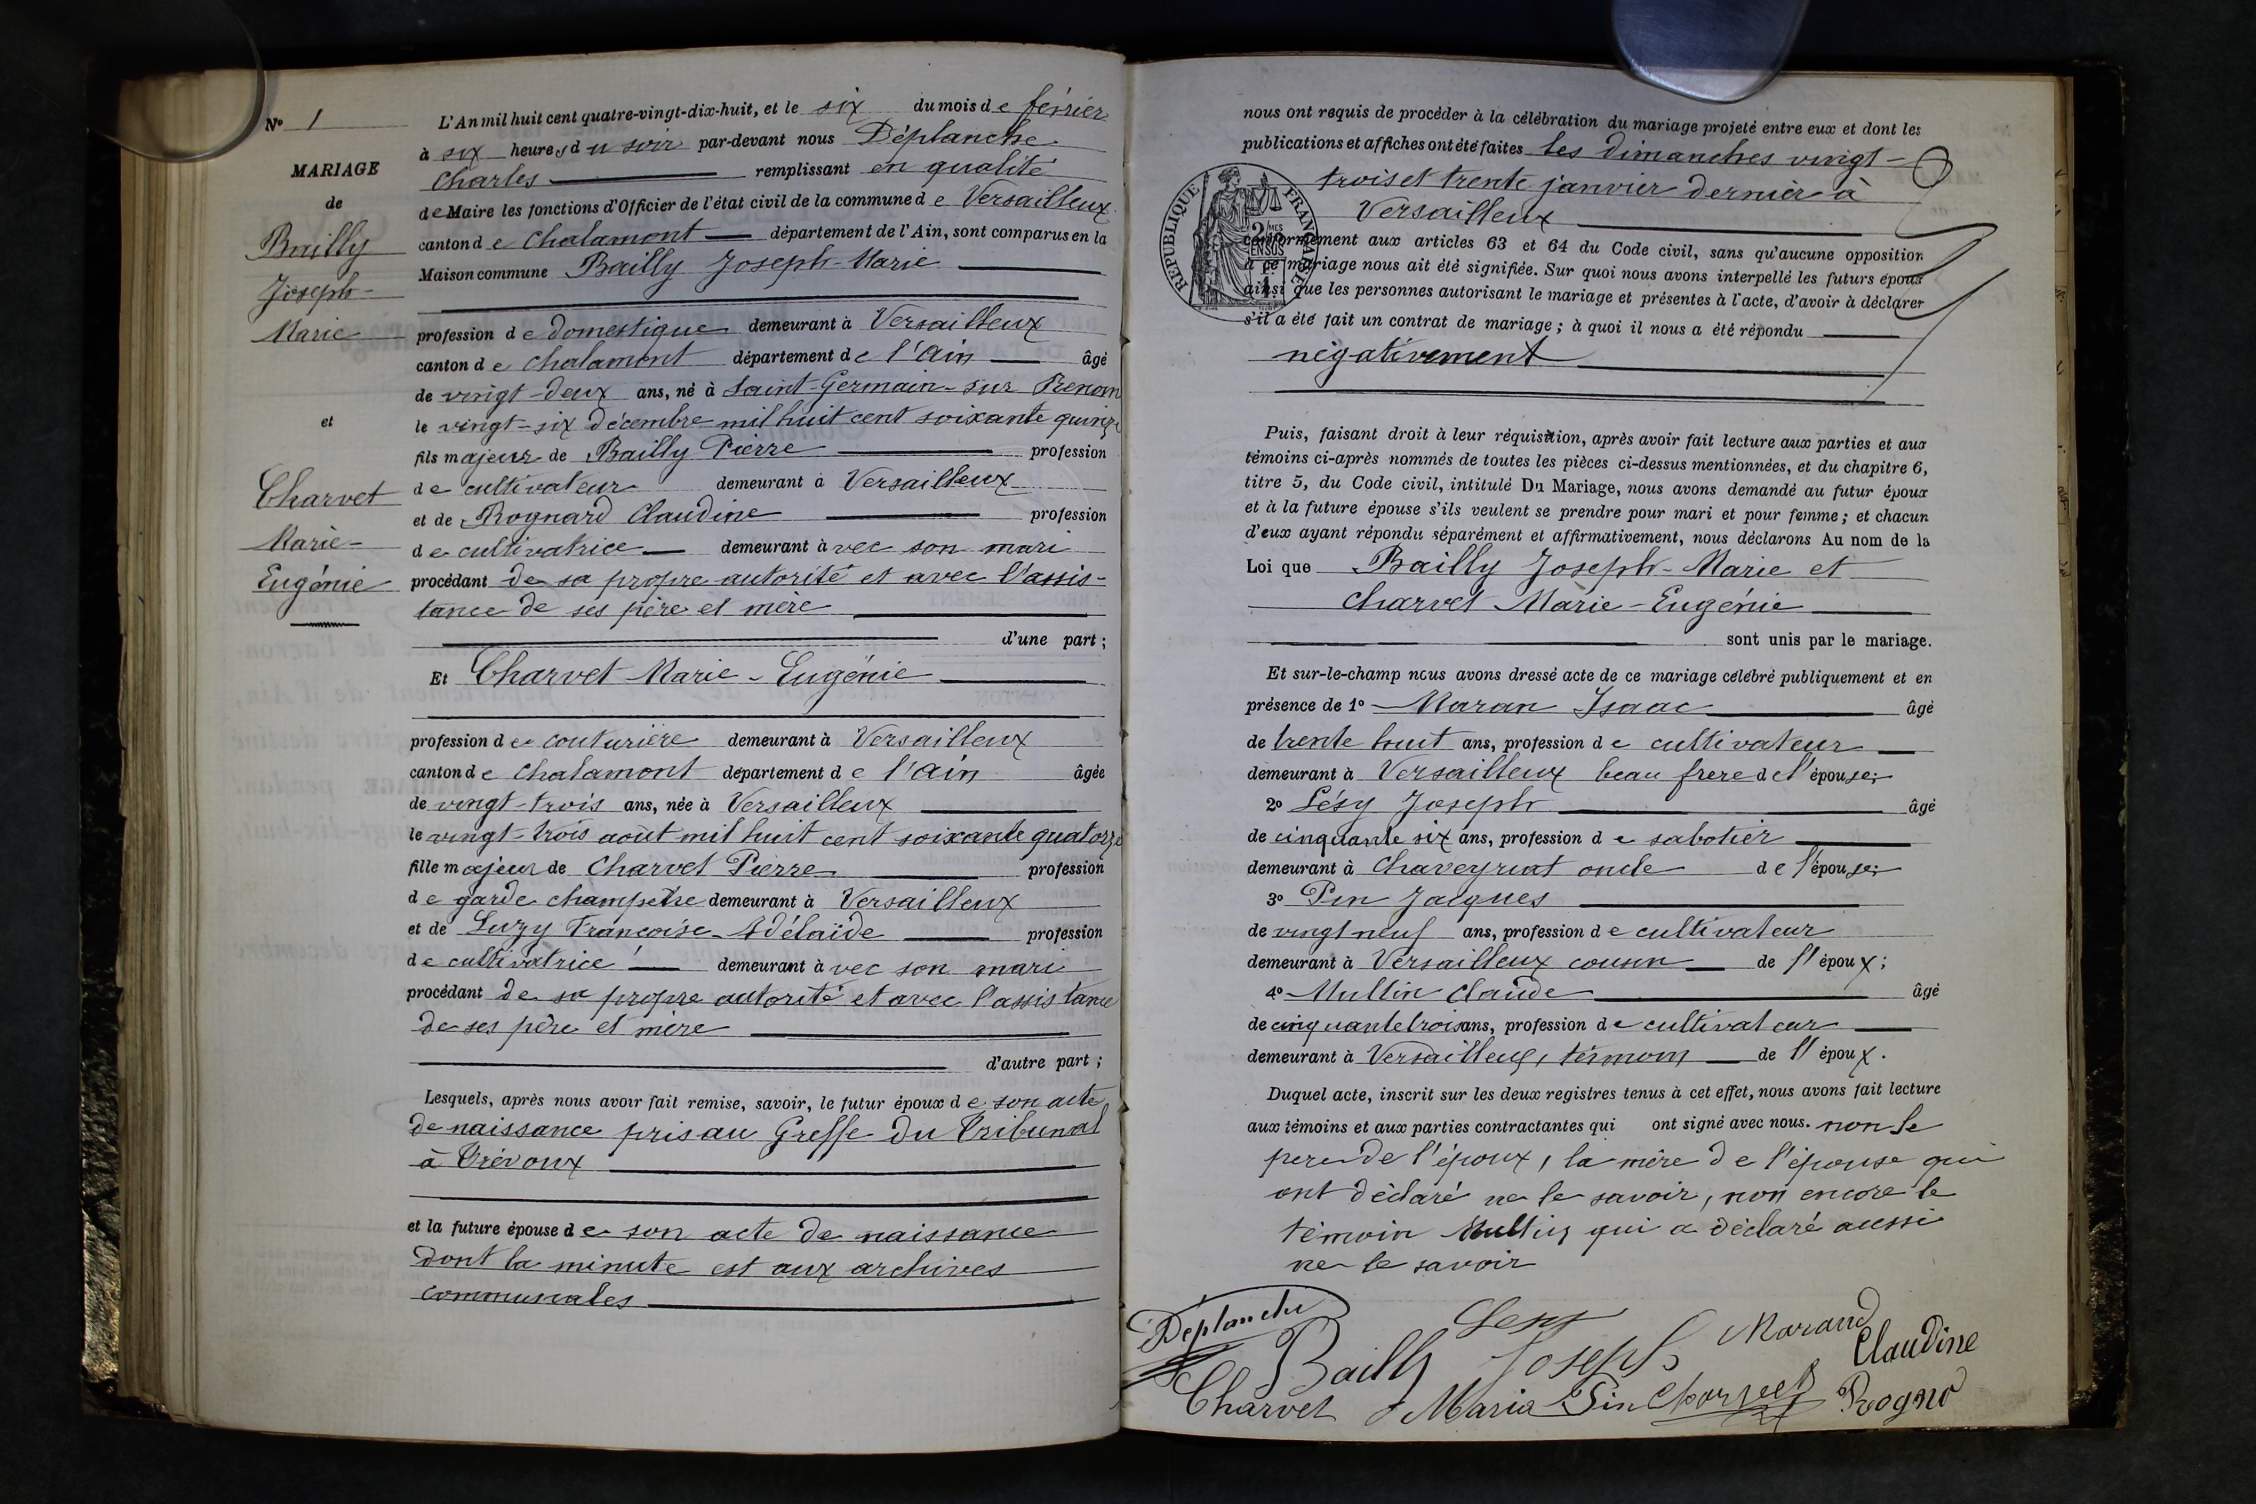 N° 1
MARIAGE
de
Bailly
Joseph-
Marie
et
Charvet
Marie-
Eugénie
L'An mil huit cent quatre-vingt-dix-huit, et le six du mois de février
à six heures du soir par-devant nous Déplanche
Charles remplissant en qualité
de Maire les fonctions d'Officier de l'état civil de la commune de Versailleux
canton de Chalamont département de l'Ain, sont comparus en la
Maison commune Bailly Joseph-Marie
profession de domestique demeurant à Versailleux
canton de Chalamont département de l'Ain âgé
de vingt-deux ans, né à Saint-Germain-sur Renom
le vingt-six décembre mil huit cent soixante quinze
fils majeur de Bailly Pierre profession
de cultivateur demeurant à Versailleux
et de Rognard Claudine profession
de cultivatrice demeurant avec son mari
procédant de sa propre autorité et avec l'assis-
tance de ses père et mère
d'une part ;
Et Charvet Marie-Eugénie
profession de couturière demeurant à Versailleux
canton de Chalamont département de l'Ain âgée
de vingt-trois ans, née à Versailleux
le vingt-trois août mil huit cent soixante quatorze
fille majeur de Charvet Pierre profession
de garde champêtre demeurant à Versailleux
et de Luzy Françoise-Adélaïde profession
de cultivatrice demeurant avec son mari
procédant de sa propre autorité et avec l'assistance
de ses père et mère
d'autre part ;
Lesquels, après nous avoir fait remise, savoir, le futur époux de son acte
de naissance pris au Greffe du Tribunal
à Trévoux
et la future épouse de son acte de naissance
dont la minute est aux archives
communales
nous ont requis de procéder à la célébration du mariage projeté entre eux et dont les
publications et affiches ont été faites les dimanches vingt-
trois et trente janvier dernier à
Versailleux
REPUBLIQUE FRANÇAISE
2 MES
EN SUS
conformément aux articles 63 et 64 du Code civil, sans qu'aucune opposition
à ce mariage nous ait été signifiée. Sur quoi nous avons interpellé les futurs époux
ainsi que les personnes autorisant le mariage et présentes à l'acte, d'avoir à déclarer
s'il a été fait un contrat de mariage ; à quoi il nous a été répondu
négativement
Puis, faisant droit à leur réquisition, après avoir fait lecture aux parties et aux
témoins ci-après nommés de toutes les pièces ci-dessus mentionnées, et du chapitre 6,
titre 5, du Code civil, intitulé Du Mariage, nous avons demandé au futur époux
et à la future épouse s'ils veulent se prendre pour mari et pour femme ; et chacun
d'eux ayant répondu séparément et affirmativement, nous déclarons Au nom de la
Loi que Bailly Joseph-Marie et
Charvet Marie-Eugénie
sont unis par le mariage.
Et sur-le-champ nous avons dressé acte de ce mariage célébré publiquement et en
présence de 1° Maran Isaac âgé
de trente huit ans, profession de cultivateur
demeurant à Versailleux beau frere de l'épouse;
2° Lésy Joseph âgé
de cinquante six ans, profession de sabotier
demeurant à Chaveyriat oncle de l'épouse;
3° Pin Jacques
de vingt neuf ans, profession de cultivateur
demeurant à Versailleux cousin de l'époux ;
4° Multin Claude âgé
de cinquante trois ans, profession de cultivateur
demeurant à Versailleux, témoin de l'époux.
Duquel acte, inscrit sur les deux registres tenus à cet effet, nous avons fait lecture
aux témoins et aux parties contractantes qui ont signé avec nous. non le
pere de l'époux, la mère de l'épouse qui
ont déclaré ne le savoir, non encore le
témoin Multin qui a déclaré aussi
ne le savoir
Déplanche
Bailly Joseph Marand
Claudine
Charvet Maria Pin Charvet Rognd